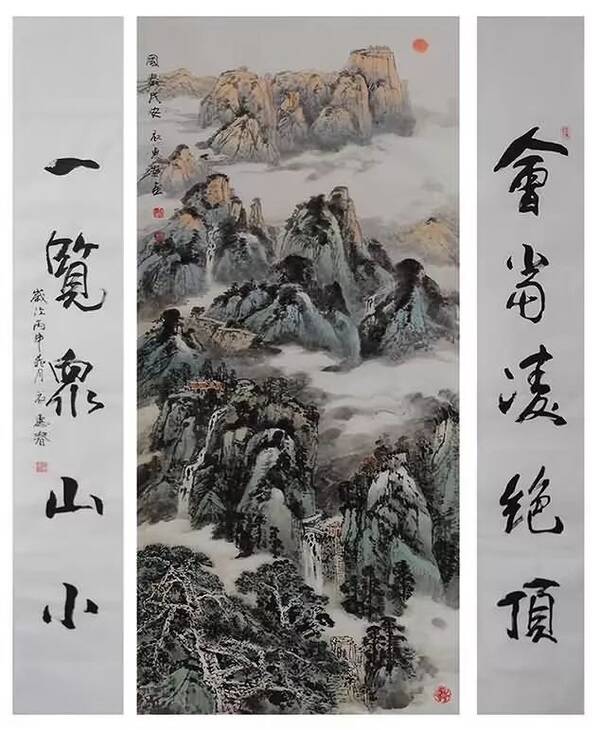 會當凌絕頂
國泰民安
一覽衆山小
歲次丙申